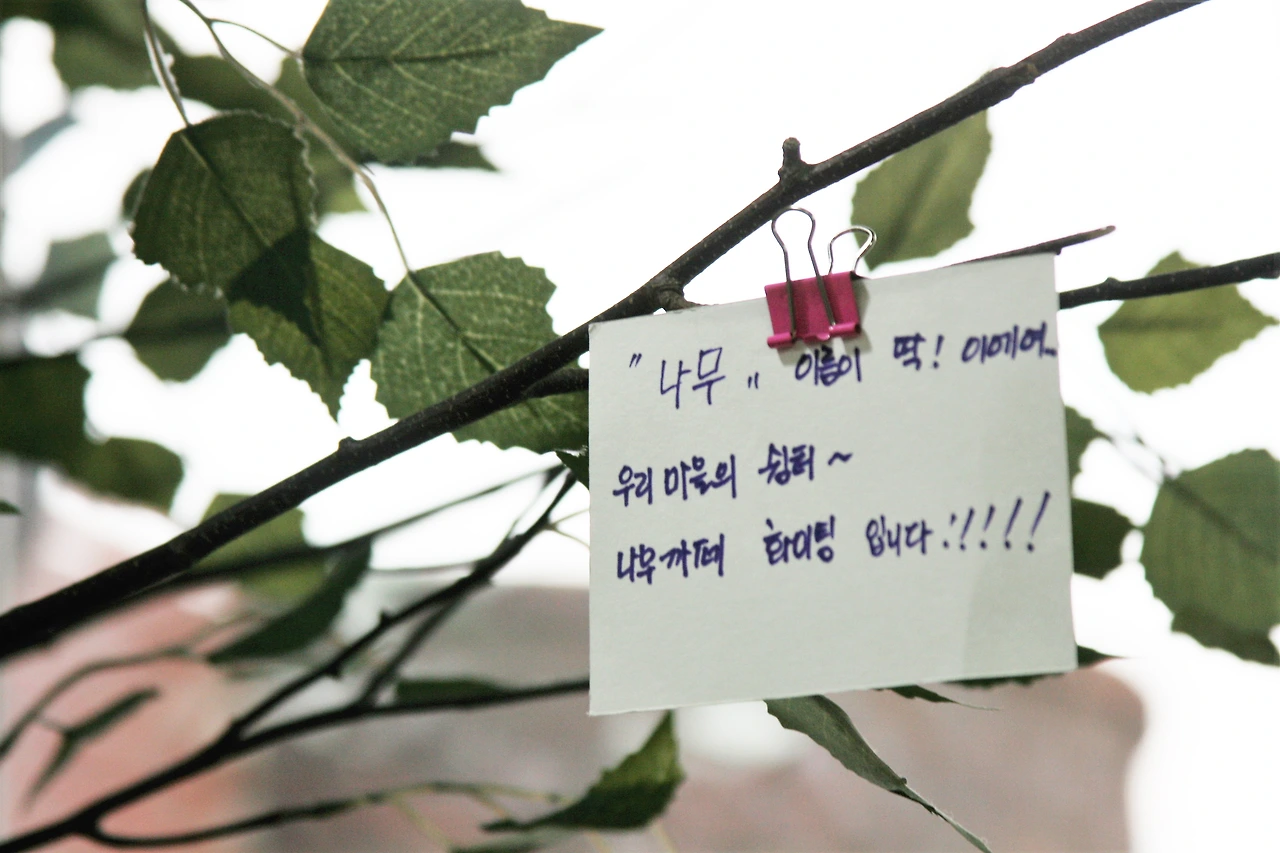 "나무" 이름이 딱! 이에여..
우리 마을의 쉼터~
나무까페 화이팅 입니다!!!!!